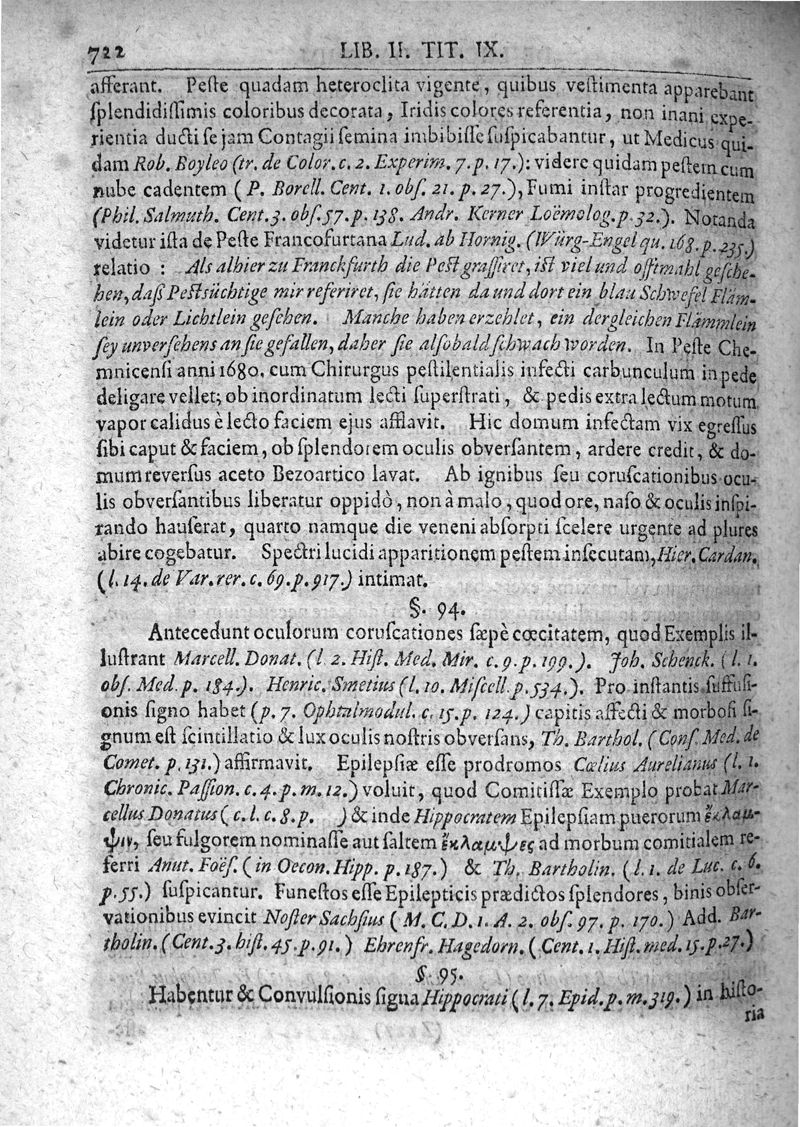 722 LIB. II. TIT. IX.
afferant. Peſte quadam heteroclita vigente, quibus veſtimenta apparebant
ſplendidiſſimis coloribus decorata, Iridis colores referentia, non inani expe-
rientia ducti ſe jam Contagii ſemina imbibiſſe ſuſpicabantur, ut Medicus qui-
dam Rob. Boyleo (tr. de Color. c. 2. Experim. 7. p. 17.): videre quidam peſtem cum
nube cadentem ( P. Borell. Cent. 1. obſ. 21. p. 27.), Fumi inſtar progredientem
(Phil. Salmuth. Cent. 3. obſ. 57. p. 138. Andr. Kerner Loëmolog. p. 32.). Notanda
videtur iſta de Peſte Francofurtana Lud. ab Hornig. (Würg-Engel qu. 168. p. 235.)
relatio : Als alhier zu Franckfurth die Peſt graſſiret, iſt viel und offtmahl geſche-
hen, daß Peſtsüchtige mir referiret, ſie hätten da und dort ein blau Schwefel Fläm-
lein oder Lichtlein geſehen. Manche haben erzehlet, ein dergleichen Flämmlein
ſey unverſehens an ſie gefallen, daher ſie alſobald ſchwach worden. In Peſte Che-
mnicenſi anni 1680. cum Chirurgus peſtilentialis infecti carbunculum in pede
deligare vellet; ob inordinatum lecti ſuperſtrati, & pedis extra lectum motum
vapor calidus è lecto faciem ejus afflavit. Hic domum infectam vix egreſſus
ſibi caput & faciem, ob ſplendorem oculis obverſantem, ardere credit, & do-
mum reverſus aceto Bezoartico lavat. Ab ignibus ſeu coruſcationibus ocu-
lis obverſantibus liberatur oppidò, non à malo, quod ore, naſo & oculis inſpi-
rando hauſerat, quarto namque die veneni abſorpti ſcelere urgente ad plures
abire cogebatur. Spectri lucidi apparitionem peſtem inſecutam, Hier. Cardan.
(l. 14. de Var. rer. c. 69. p. 917.) intimat.
§. 94.
Antecedunt oculorum coruſcationes ſæpè cœcitatem, quod Exemplis il-
luſtrant Marcell. Donat. (l. 2. Hiſt. Med. Mir. c. 9. p. 199.). Joh. Schenck. (l. 1.
obſ. Med. p. 184.). Henric. Smetius (l. 10. Miſcell. p. 534.). Pro inſtantis ſuffuſi-
onis ſigno habet (p. 7. Ophtalmodul. c. 15. p. 124.) capitis affecti & morboſi ſi-
gnum eſt ſcintillatio & lux oculis noſtris obverſans, Th. Barthol. (Conſ. Med. de
Comet. p. 131.) affirmavit. Epilepſiæ eſſe prodromos Cœlius Aurelianus (l. 1.
Chronic. Paſſion. c. 4. p. m. 12.) voluit, quod Comitiſſæ Exemplo probat Mar-
cellus Donatus ( c. l. c. 8. p. ) & inde Hippocratem Epilepſiam puerorum ἔκλαμ-
ψιν, ſeu fulgorem nominaſſe aut ſaltem ἔκλαμψες ad morbum comitialem re-
ferri Anut. Foëſ. ( in Oecon. Hipp. p. 187.) & Th. Bartholin. (l. 1. de Luc. c. 6.
p. 55.) ſuſpicantur. Funeſtos eſſe Epilepticis prædictos ſplendores, binis obſer-
vationibus evincit Noſter Sachſius ( M. C. D. 1. A. 2. obſ. 97. p. 170.) Add. Bar-
tholin. (Cent. 3. hiſt. 45. p. 91. ) Ehrenfr. Hagedorn. ( Cent. 1. Hiſt. med. 15. p. 27.)
§. 95.
Habentur & Convulſionis ſigna Hippocrati ( l. 7. Epid. p. m. 319.) in hiſto-
ria